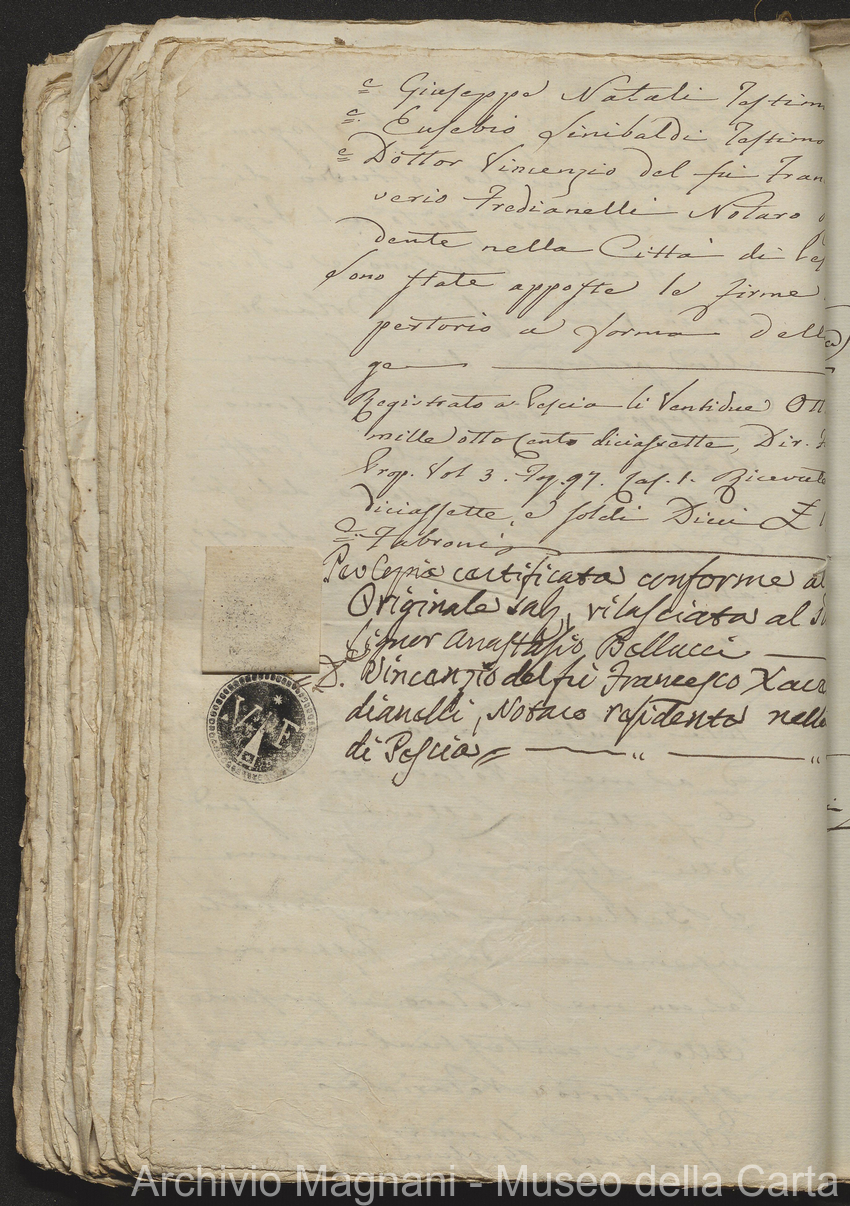 Giuseppe Natali Testim
Eusebio Sinibaldi Testimo
Dottor Vincenzio del fù Fran
verio Fredianelli Notaro
dente nella Città di Pes
Sono state apposte le firme
pertorio a forma dell
ge
Registrato a Pescia li Ventidue Ott
mille otto cento diciassette, Dir.
Prop. Vol 3. Fog. 97. Cas. 1. Ricevute
diciassette, e soldi Dieci £
Fabroni
Per Copia certificata conforme a
Originale rilasciata al
Signor Anastasio Bellucci
D. Vincenzio del fù Francesco Xave
dianelli, Notaro residente nella
di Pescia
Archivio Magnani - Museo della Carta